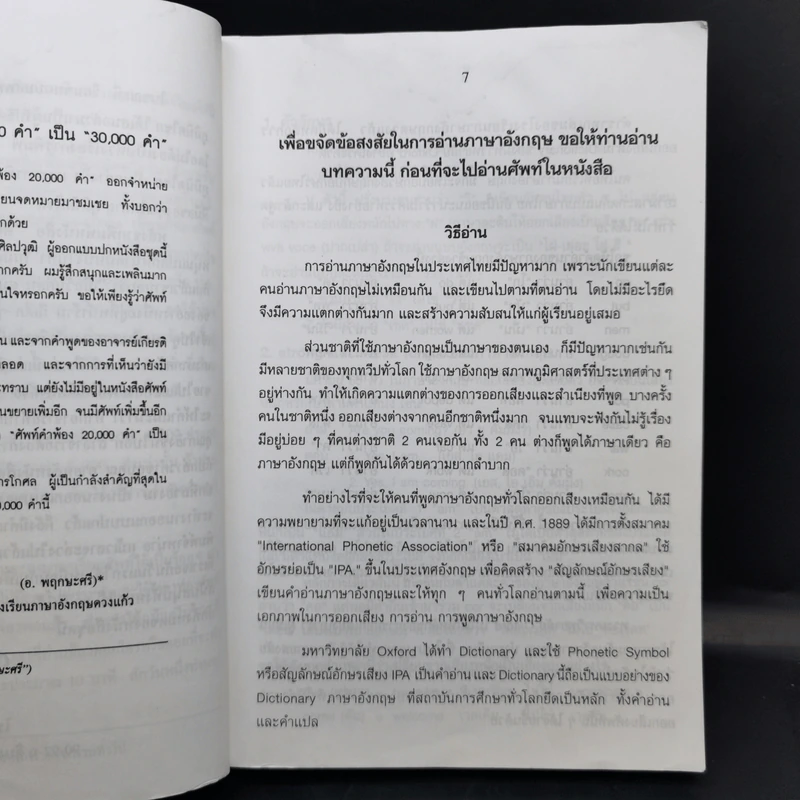 0 คำ" เป็น "30,000 คำ"
พ้อง 20,000 คำ" ออกจำหน่าย
ยนจดหมายมาชมเชย ทั้งบอกว่า
กด้วย
ศิลปวุฒิ ผู้ออกแบบปกหนังสือชุดนี้
ากครับ ผมรู้สึกสนุกและเพลินมาก
นใจหรอกครับ ขอให้เพียงรู้ว่าศัพท์
น และจากคำพูดของอาจารย์เกียรติ
ลอด และจากการที่เห็นว่ายังมี
ทราบ แต่ยังไม่มีอยู่ในหนังสือศัพท์
นขยายเพิ่มอีก จนมีศัพท์เพิ่มขึ้นอีก
"ศัพท์คำพ้อง 20,000 คำ" เป็น
ารโกศล ผู้เป็นกำลังสำคัญที่สุดใน
0,000 คำนี้
(อ. พฤกษะศรี)*
งเรียนภาษาอังกฤษดวงแก้ว
ษะศรี")
7
เพื่อขจัดข้อสงสัยในการอ่านภาษาอังกฤษ ขอให้ท่านอ่าน
บทความนี้ ก่อนที่จะไปอ่านศัพท์ในหนังสือ
วิธีอ่าน
การอ่านภาษาอังกฤษในประเทศไทยมีปัญหามาก เพราะนักเขียนแต่ละ
คนอ่านภาษาอังกฤษไม่เหมือนกัน และเขียนไปตามที่ตนอ่าน โดยไม่มีอะไรยึด
จึงมีความแตกต่างกันมาก และสร้างความสับสนให้แก่ผู้เรียนอยู่เสมอ
ส่วนชาติที่ใช้ภาษาอังกฤษเป็นภาษาของตนเอง ก็มีปัญหามากเช่นกัน
มีหลายชาติของทุกทวีปทั่วโลก ใช้ภาษาอังกฤษ สภาพภูมิศาสตร์ที่ประเทศต่าง ๆ
อยู่ห่างกัน ทำให้เกิดความแตกต่างของการออกเสียงและสำเนียงที่พูด บางครั้ง
คนในชาติหนึ่ง ออกเสียงต่างจากคนอีกชาติหนึ่งมาก จนแทบจะฟังกันไม่รู้เรื่อง
มีอยู่บ่อย ๆ ที่คนต่างชาติ 2 คนเจอกัน ทั้ง 2 คน ต่างก็พูดได้ภาษาเดียว คือ
ภาษาอังกฤษ แต่ก็พูดกันได้ด้วยความยากลำบาก
ทำอย่างไรที่จะให้คนที่พูดภาษาอังกฤษทั่วโลกออกเสียงเหมือนกัน ได้มี
ความพยายามที่จะแก้อยู่เป็นเวลานาน และในปี ค.ศ. 1889 ได้มีการตั้งสมาคม
"International Phonetic Association" หรือ "สมาคมอักษรเสียงสากล" ใช้
อักษรย่อเป็น "IPA." ขึ้นในประเทศอังกฤษ เพื่อคิดสร้าง "สัญลักษณ์อักษรเสียง"
เขียนคำอ่านภาษาอังกฤษและให้ทุก ๆ คนทั่วโลกอ่านตามนี้ เพื่อความเป็น
เอกภาพในการออกเสียง การอ่าน การพูดภาษาอังกฤษ
มหาวิทยาลัย Oxford ได้ทำ Dictionary และใช้ Phonetic Symbol
หรือสัญลักษณ์อักษรเสียง IPA เป็นคำอ่าน และ Dictionary นี้ถือเป็นแบบอย่างของ
Dictionary ภาษาอังกฤษ ที่สถาบันการศึกษาทั่วโลกยึดเป็นหลัก ทั้งคำอ่าน
และคำแปล